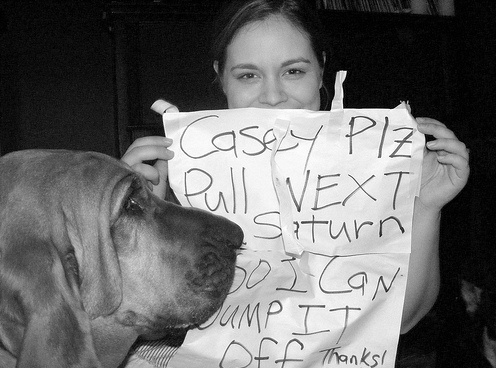 Casey Plz
Pull NEXT
Saturn
SO I CAN
JUMP IT
OFF Thanks!